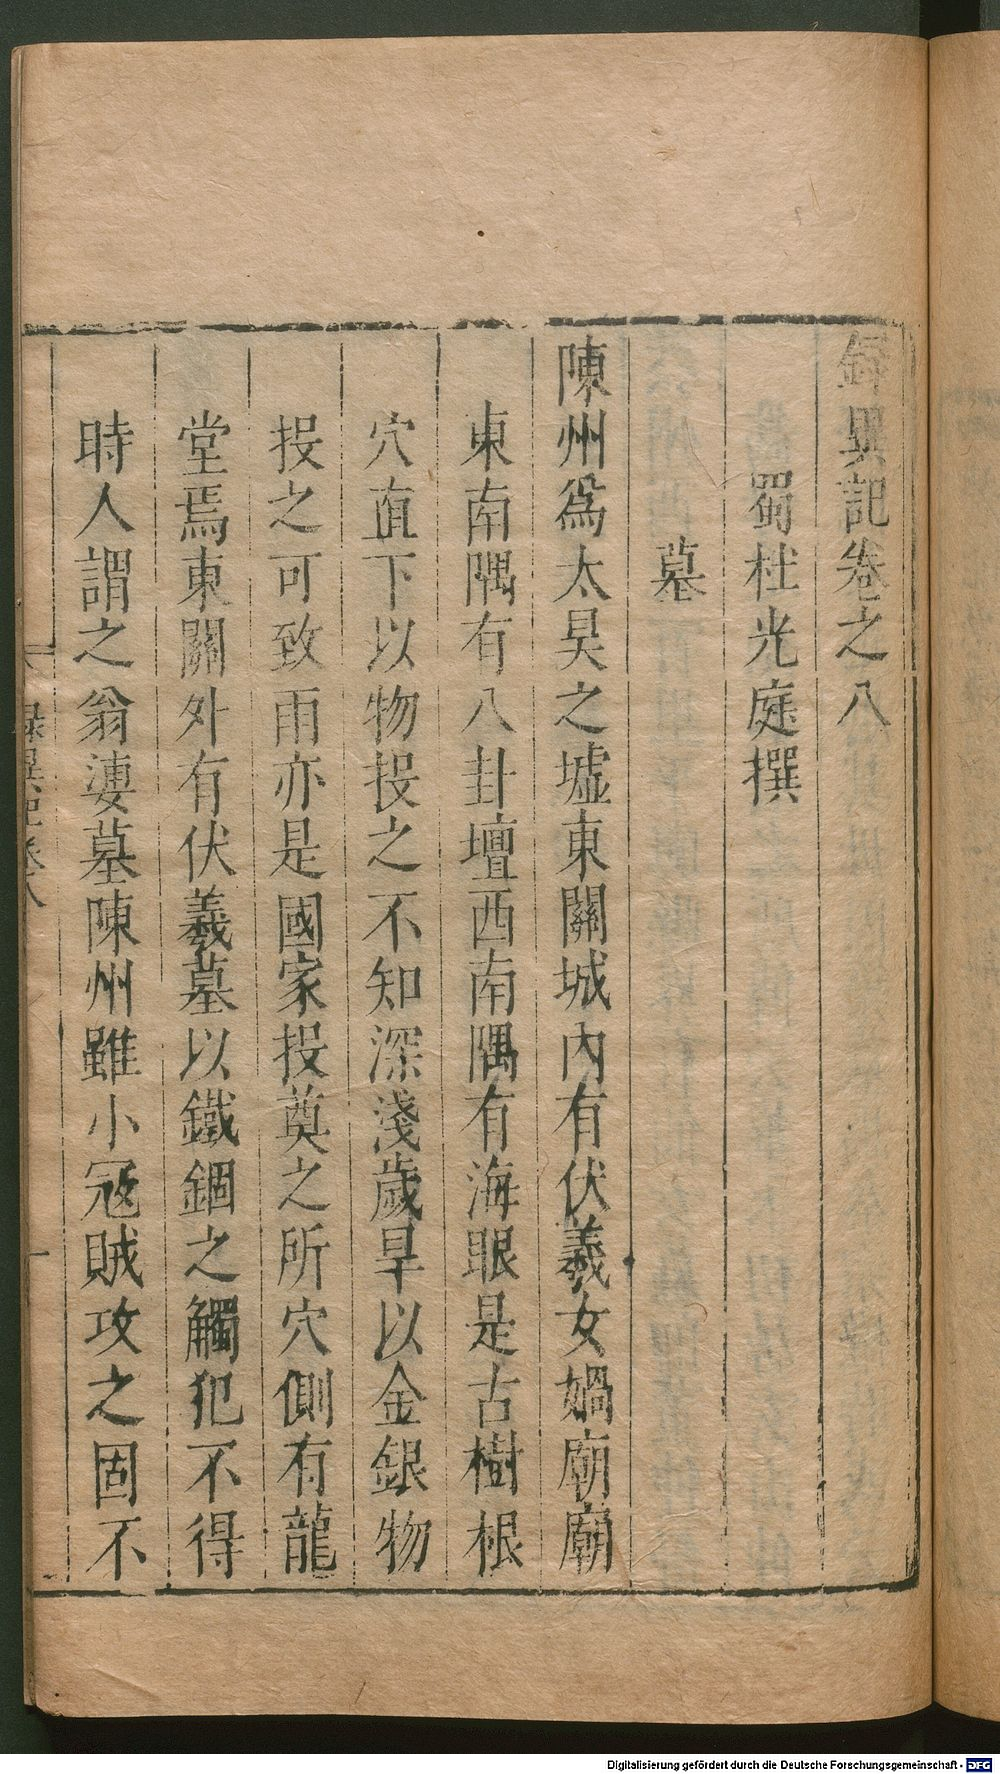 錄異記卷之八
蜀杜光庭撰
墓
陳州爲太昊之墟東關城內有伏羲女媧廟廟
東南隅有八卦壇西南隅有海眼是古樹根
穴直下以物投之不知深淺歲旱以金銀物
投之可致雨亦是國家投奠之所穴側有龍
堂焉東關外有伏羲墓以鐵錮之觸犯不得
時人謂之翁婆墓陳州雖小寇賊攻之固不
錄異記卷八
一
Digitalisierung gefördert durch die Deutsche Forschungsgemeinschaft - DFG